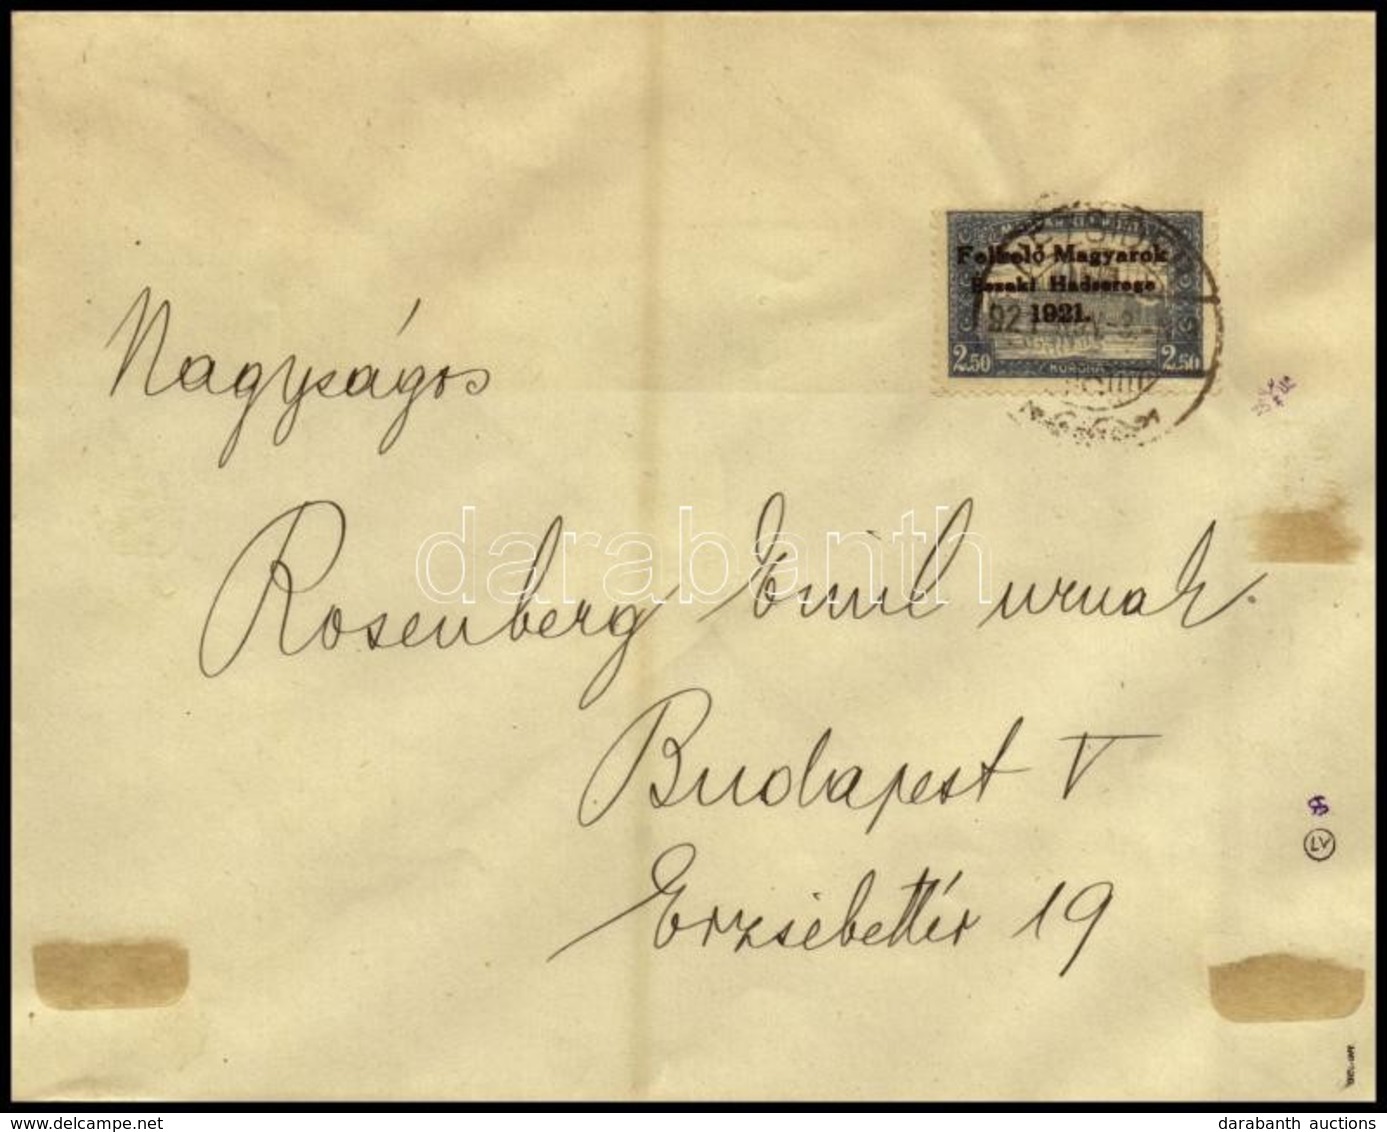 Felkelő Magyarok
Északi Hadserege
1921.
2.50 KORONA 2.50
Nagyságos
Rosenberg Emil urnak
darabanth
Budapest V
Erzsébettér 19
LV
www.delcampe.net
darabanth auctions